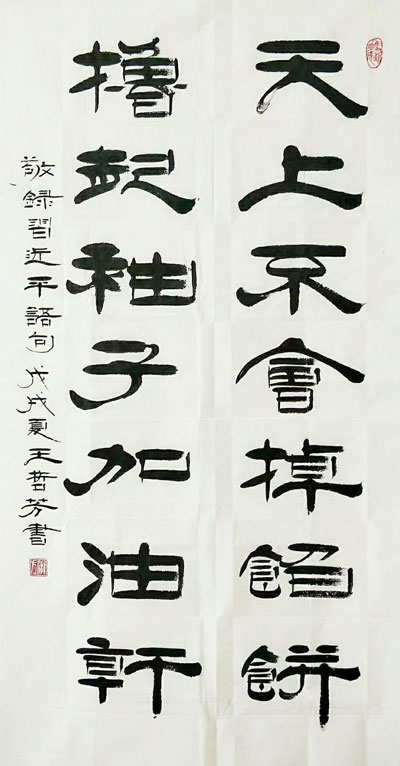 天上不會掉餡餅
擼起袖子加油幹
敬録習近平語句 戊戌夏王哲芳書